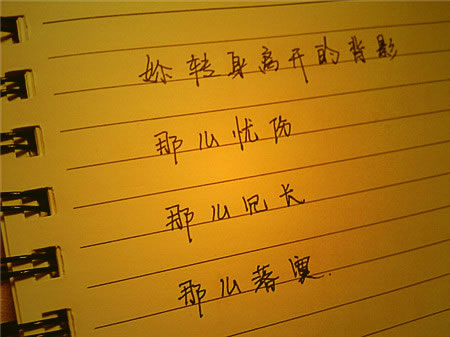 妳转身离开的背影
那么忧伤
那么冗长
那么落寞.